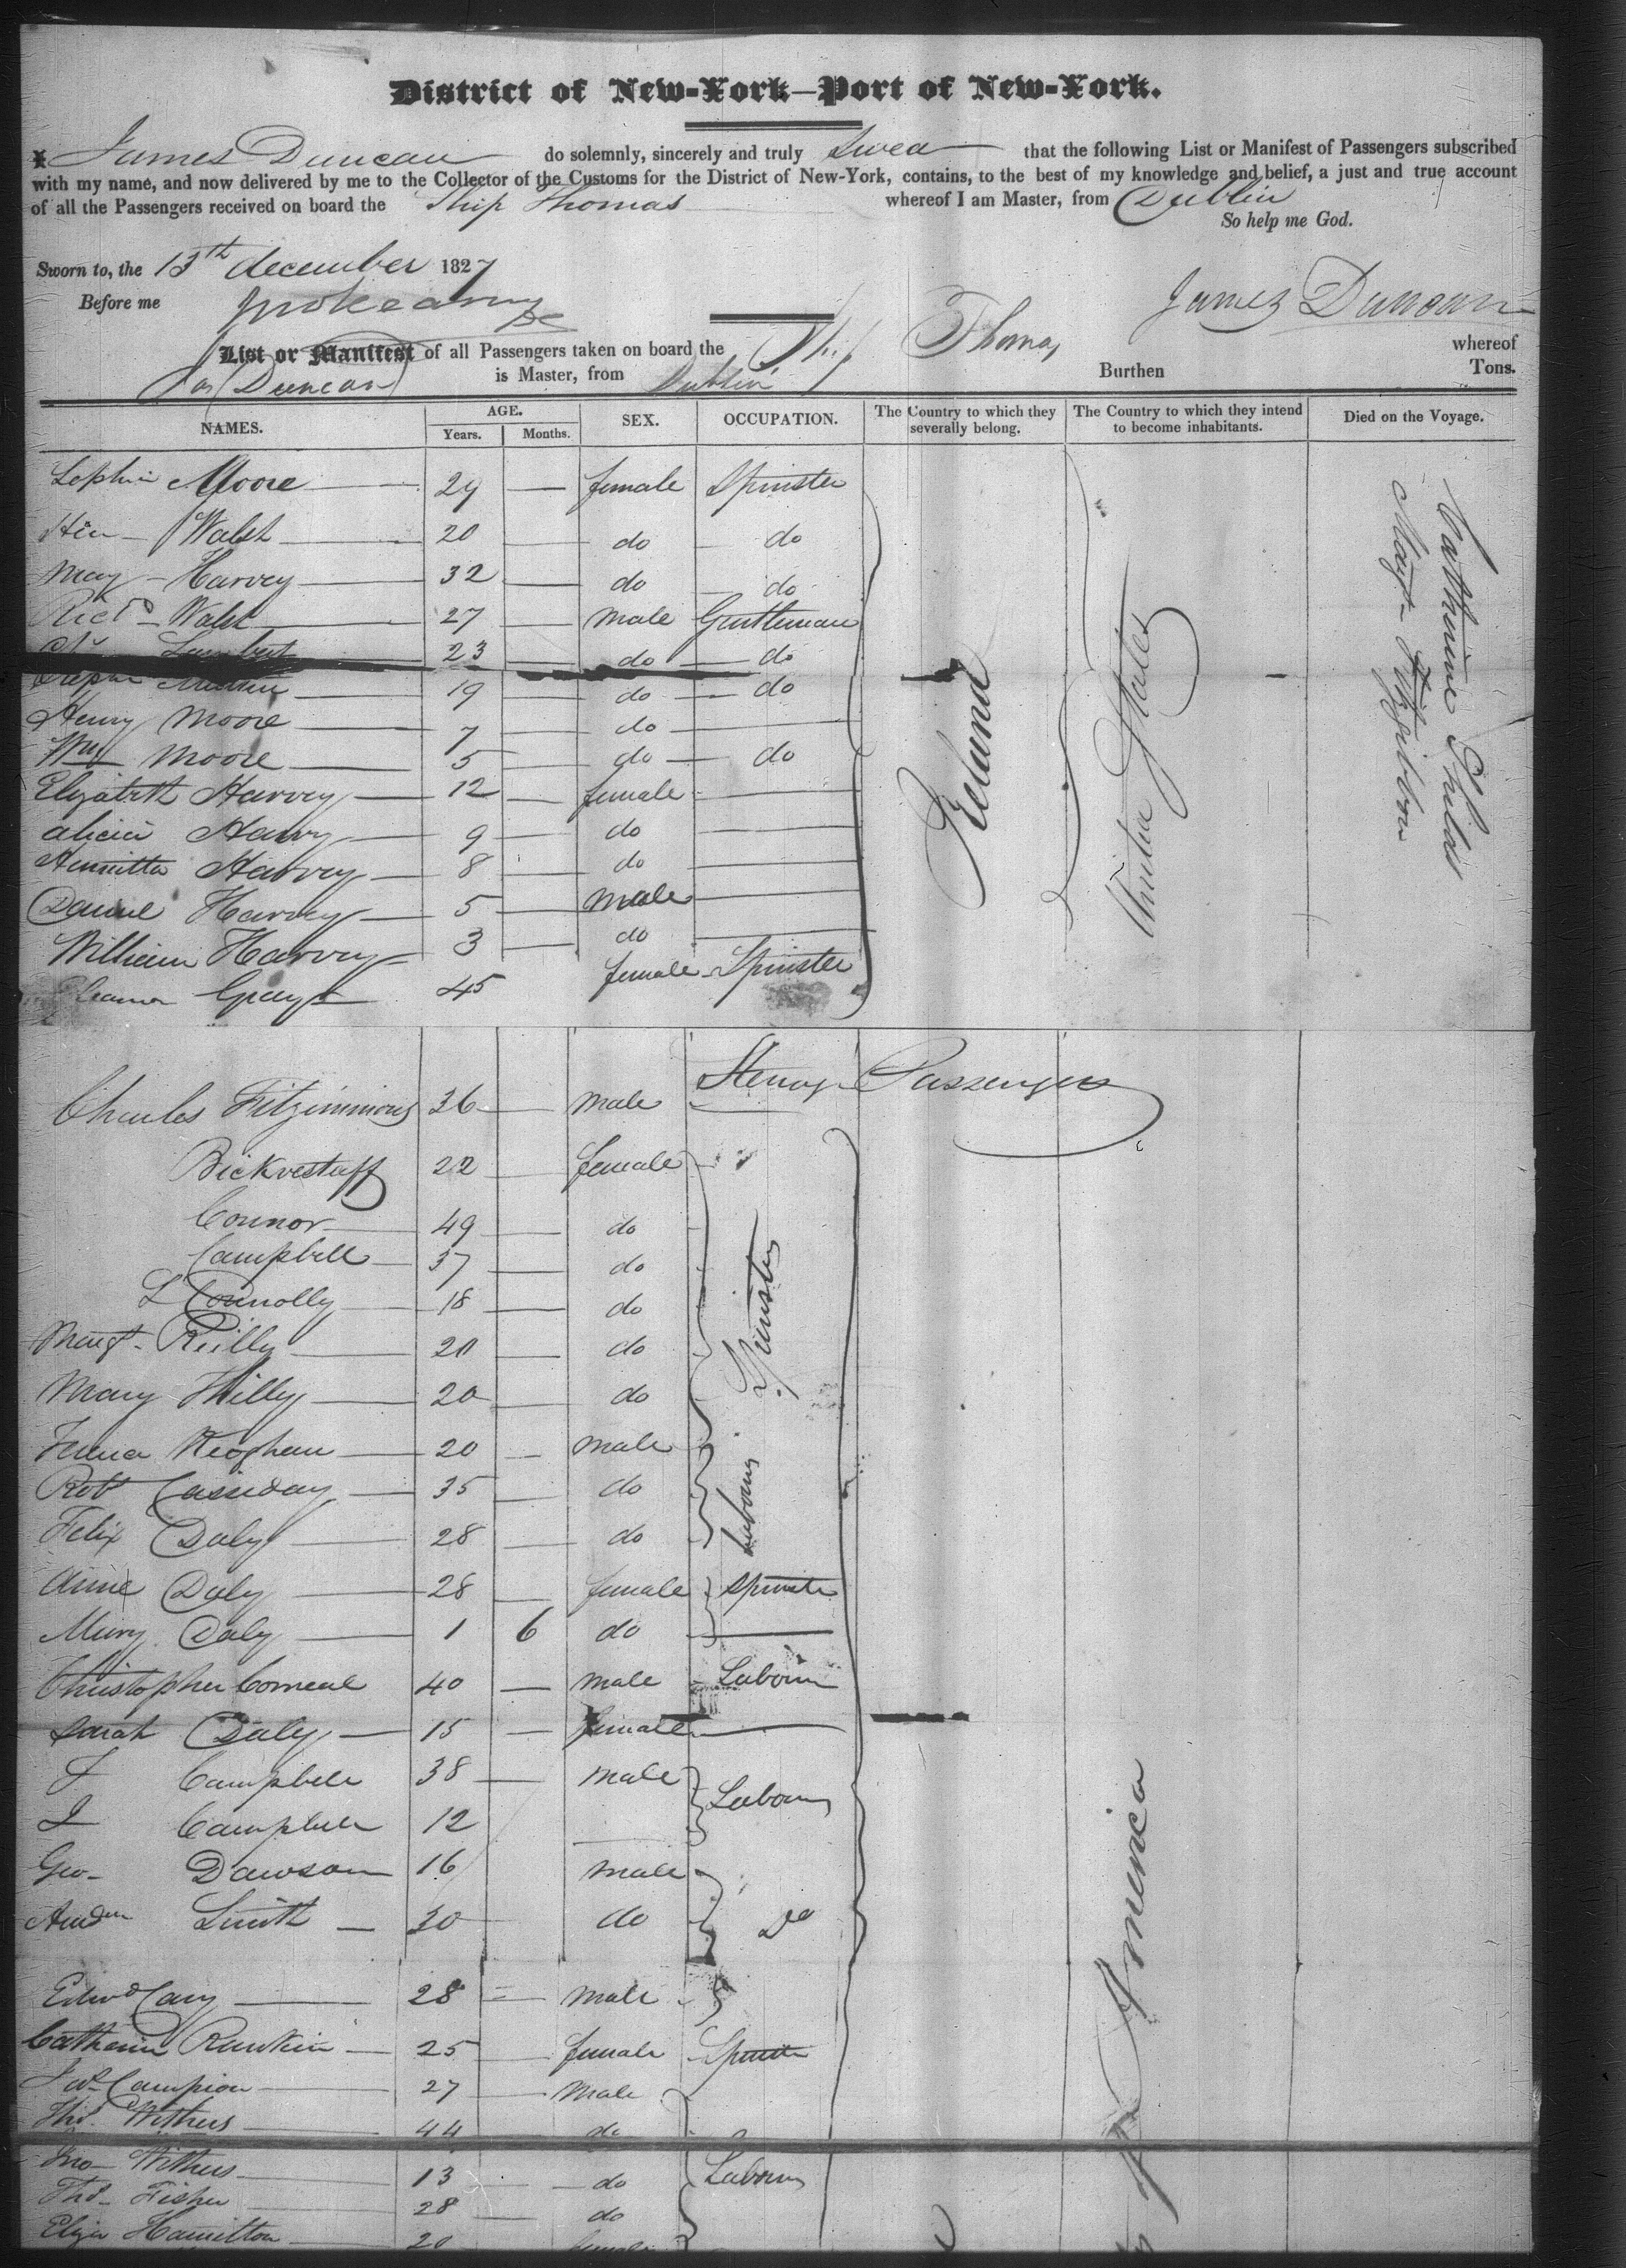 District of New-York—Port of New-York.
James Duncan do solemnly, sincerely and truly Swear that the following List or Manifest of Passengers subscribed
with my name, and now delivered by me to the Collector of the Customs for the District of New-York, contains, to the best of my knowledge and belief, a just and true account
of all the Passengers received on board the Ship Thomas whereof I am Master, from Dublin
So help me God.
Sworn to, the 13th december 1827
Before me
James Duncan
List or Manifest of all Passengers taken on board the Ship Thomas whereof
Jas Duncan is Master, from Dublin Burthen Tons.
NAMES. AGE. Years. Months. SEX. OCCUPATION. The Country to which they severally belong. The Country to which they intend to become inhabitants. Died on the Voyage.
Moore 29 female Spinster
Walsh 20 do do
May Harvey 32 do do
Richd Walsh 27 male Gentleman
Lambert 23 do do
19 do do
Henry Moore 7 do
Wm Moore 5 do do
Elizabeth Harvey 12 female
alicia Harvy 9 do
Henrietta Harvey 8 do
Daniel Harvey 5 male
William Harvey 3 do
Eleanor Gray 45 female Spinster
Ireland
United States
Catherine Shiels
Margt Fitzgibbon
Steerage Passengers
Charles Fitzsimmons 36 male
Bickerstaff 22 female
Connor 49 do
Campbell 37 do
Connolly 18 do
Margt Reilly 20 do
Spinsters
Mary Hilly 20 do
Keoghan 20 male
Robt Cassiday 35 do
Labourers
Felix Daly 28 do
Anne Daly 28 female Spinster
Mary Daly 1 6 do
Christopher Corneal 40 male Labourer
Sarah Daly 15 female
Campbell 38 male
Labourers
Campbell 12
Geo Dawson 16 male
Andrw Smith 30 do Do
America
Edwd Cary 28 male
Catherine Rankin 25 female Spinster
Campion 27 male
Thos Withers 44 do
Jno Withers 13 do Labourers
Thos Fisher 28 do
Eliza Hamilton 20 female